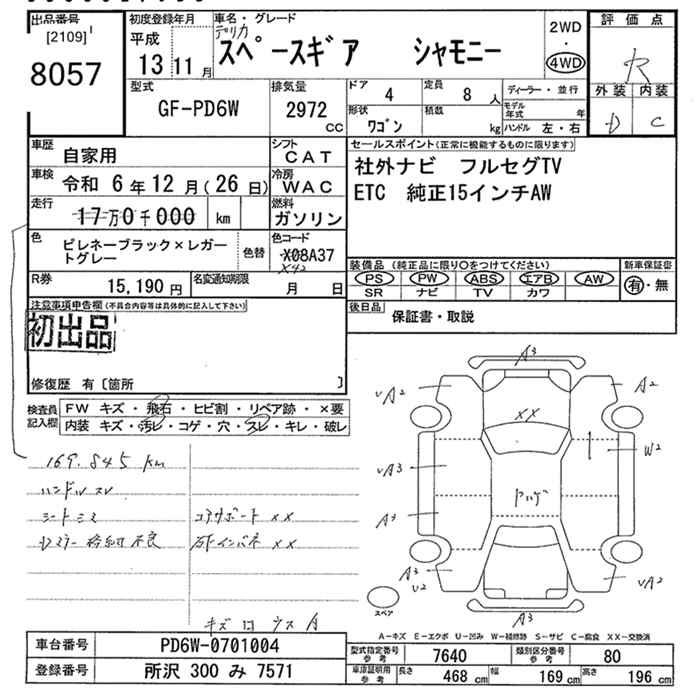 出品番号
[2109]
8057
初度登録年月
平成
13 11 月
車名・グレード
デリカ
スペースギア シャモニー
2WD
・
4WD
評価点
R
外装 内装
D C
型式
GF-PD6W
排気量
2972
CC
ドア
4
定員
8 人
形状
ワゴン
積数
kg
ディーラー・並行
モデル
年式 年
ハンドル 左・右
車歴
自家用
シフト
CAT
車検
令和 6年 12月(26日)
冷房
WAC
走行
17万0千000 km
燃料
ガソリン
色
ピレネーブラック×レガー
トグレー
色替
色コード
X08A37
X42
R券
15,190 円
名変通知期限
月 日
セールスポイント(正常に機能するものに限ります)
社外ナビ フルセグTV
ETC 純正15インチAW
装備品 (純正品に限り○をつけてください)
PS PW ABS エアB AW
SR ナビ TV カワ
新車保証書
有・無
後日品
保証書・取説
注意事項申告欄(不具合内容等は具体的に記入して下さい)
初出品
修復歴 有〔箇所 〕
検査員
記入欄
FW キズ・飛石・ヒビ割・リペア跡・×要
内装 キズ・汚レ・コゲ・穴・スレ・キレ・破レ
169,845 km
ハンドルスレ
シートシミ
コアサポート XX
格納不良
XX
A3
UA2
A2
XX
W2
UA3
A3
ドハゲ
A3
U2
UA2
A3
スペア
A-キズ E-エクボ U-凹み W-補修跡 S-サビ C-腐食 XX-交換済
車台番号
PD6W-0701004
登録番号
所沢 300 み 7571
型式指定番号
参考
7640
類別区分番号
参考
80
車庫証明用
参考
長さ
468 cm
幅
169 cm
高さ
196 cm